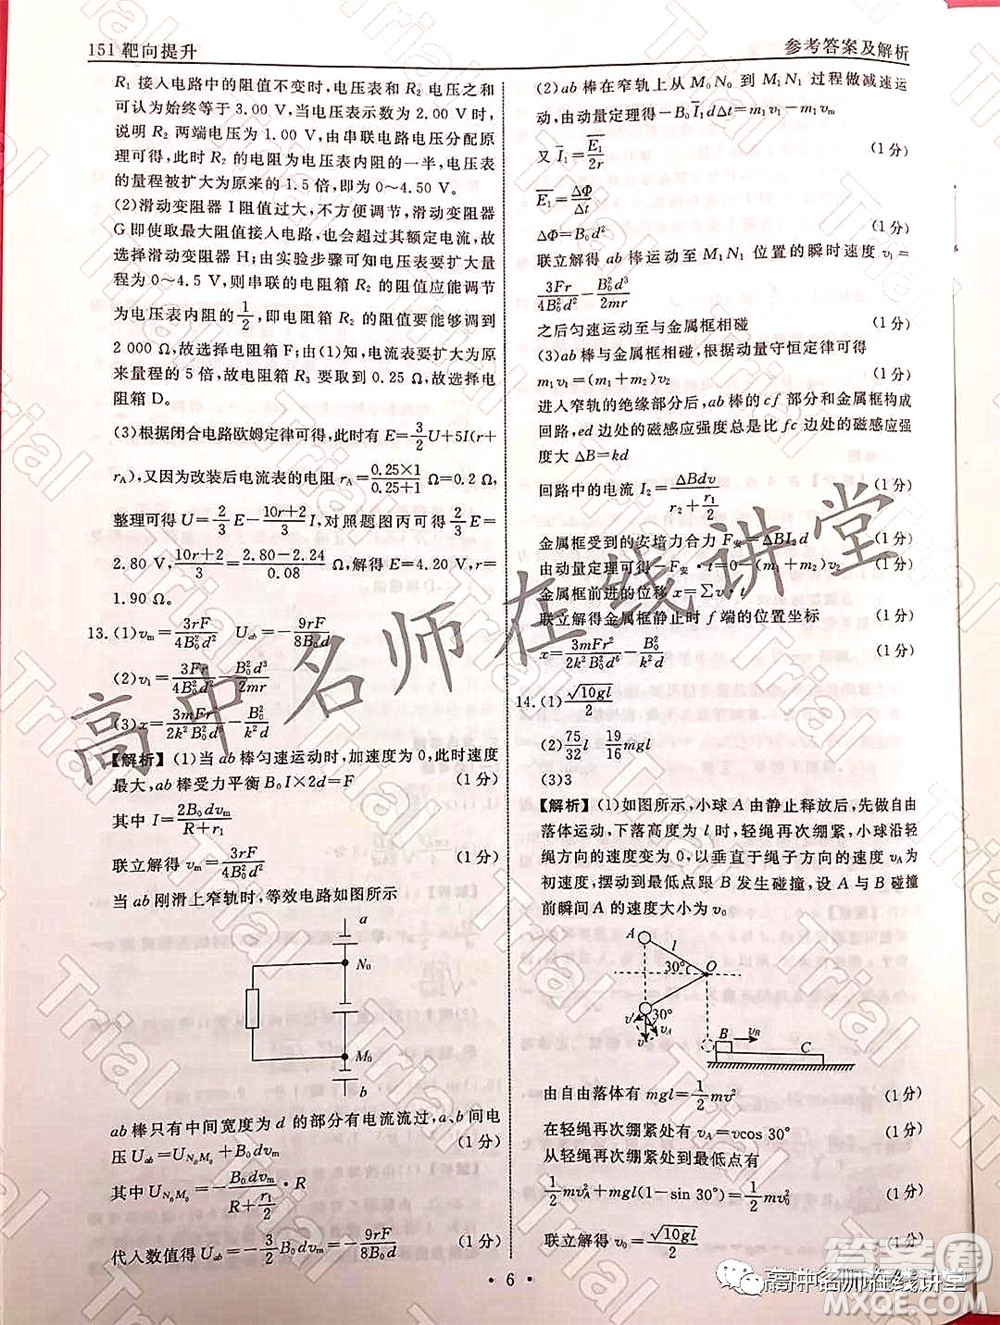 151 靶向提升
参考答案及解析
R₁ 接入电路中的阻值不变时,电压表和 R₂ 电压之和
可认为始终等于 3.00 V,当电压表示数为 2.00 V 时,
说明 R₂ 两端电压为 1.00 V,由串联电路电压分配原
理可得,此时 R₂ 的电阻为电压表内阻的一半,电压表
的量程被扩大为原来的 1.5 倍,即为 0～4.50 V。
(2)滑动变阻器 I 阻值过大,不方便调节,滑动变阻器
G 即使取最大阻值接入电路,也会超过额定电流,故选
择滑动变阻器 H;由实验步骤可知电压表的量程变为
0～4.5 V,则串联的电阻箱 R₂ 的阻值应能调节
为电压表内阻的1/2,即电阻箱 R₂ 的阻值要能够达到
2 000 Ω,故选择电阻箱 F;由(1)知,电流表的量程扩
大为原来的 5 倍,故电阻箱 R₃ 要取到 0.25 Ω,故选择电阻
箱 D。
(3)根据闭合电路欧姆定律可得,有 E=3/2U+5I(r+
r_A),又因为改装后电流表的电阻 r_A=(0.25×1)/(0.25+1) Ω,
整理可得 U=2/3E−(10r+2)/3 I,对照题图丙可得2/3E=
2.80 V,(10r+2)/3=(2.80−2.24)/0.08 Ω,解得 E=4.20 V,r=
1.90 Ω。
13.(1)v_m=3rF/4B₀²d² U_ab=−9rF/8B₀d
(2)v₁=3Fr/4B₀²d²−B₀²d³/2mr
(3)x=3mFr/2k²B₀²d²−B₀²/k²
【解析】(1)当 ab 棒匀速运动时,加速度为0,此时速度
最大,ab 棒受力平衡 B₀I×2d=F (1 分)
其中 I=2B₀dv_m/(R+r₁)
联立解得 v_m=3rF/4B₀²d² (1 分)
当 ab 刚滑上窄轨时,等效电路如图所示
a
N₀
M₀
b
ab 棒只有中间宽度为 d 的部分有电流流过,a、b 间电
压 U_ab=U_N₀M₀−B₀dv_m (1 分)
其中 U_N₀M₀=−B₀dv_m/(R+r₁/2)·R
代入数值得 U_ab=−3/2B₀dv_m=−9rF/8B₀d (1 分)
(2)ab 棒在窄轨上从 M₀N₀ 到 M₁N₁ 过程做减速运
动,由动量定理得−B₀I̅₁dΔt=m₁v₁−m₁v_m
又 I̅₁=E̅₁/2r (1 分)
E̅₁=ΔΦ/Δt
ΔΦ=B₀d² (1 分)
联立解得 ab 棒运动至 M₁N₁ 位置的瞬时速度 v₁=
3Fr/4B₀²d²−B₀²d³/2mr
之后匀速运动至与金属框相碰 (1 分)
(3)ab 棒与金属框相碰,根据动量守恒定律可得
m₁v₁=(m₁+m₂)v₂ (1 分)
进入窄轨的绝缘部分后,ab 棒的 cf 部分和金属框构成
回路,ed 边处的磁感应强度总是比 fc 边处的磁感应强
度大 ΔB=kd
回路中的电流 I₂=ΔBdv/(r₂+r₁/2) (1 分)
金属框受到的安培力合力 F安=ΔBI₂d
由动量定理可得−F安·t=0−(m₁+m₂)v₂ (1 分)
金属框前进的位移 x=∑v·t
联立解得金属框静止时 f 端的位置坐标
x=3mFr/2k²B₀²d²−B₀²/k² (1 分)
14.(1)√10gl/2
(2)75/32l 19/16m
(3)3
【解析】(1)如图所示,小球 A 由静止释放后,先做自由
落体运动,下落高度为 l 时,轻绳再次绷紧,小球沿轻
绳方向的速度变为 0,以垂直于绳子方向的速度 v_A 为
初速度,摆到最低点后与 B 发生碰撞,设与 B 碰撞
前瞬间 A 的速度大小为 v₀
A
l
30°
O
30°
v′
v_A
v
B
v_B
C
由自由落体运动有 mgl=1/2mv² (1 分)
在轻绳再次绷紧处有 v_A=vcos 30° (1 分)
从轻绳再次绷紧处到最低点有
1/2mv_A²+mgl(1−sin 30°)=1/2mv₀² (1 分)
联立解得 v₀=√10gl/2 (1 分)
• 6 •
高中名师在线讲堂
高中名师在线讲堂
答案圈
MXQE.COM
Trial